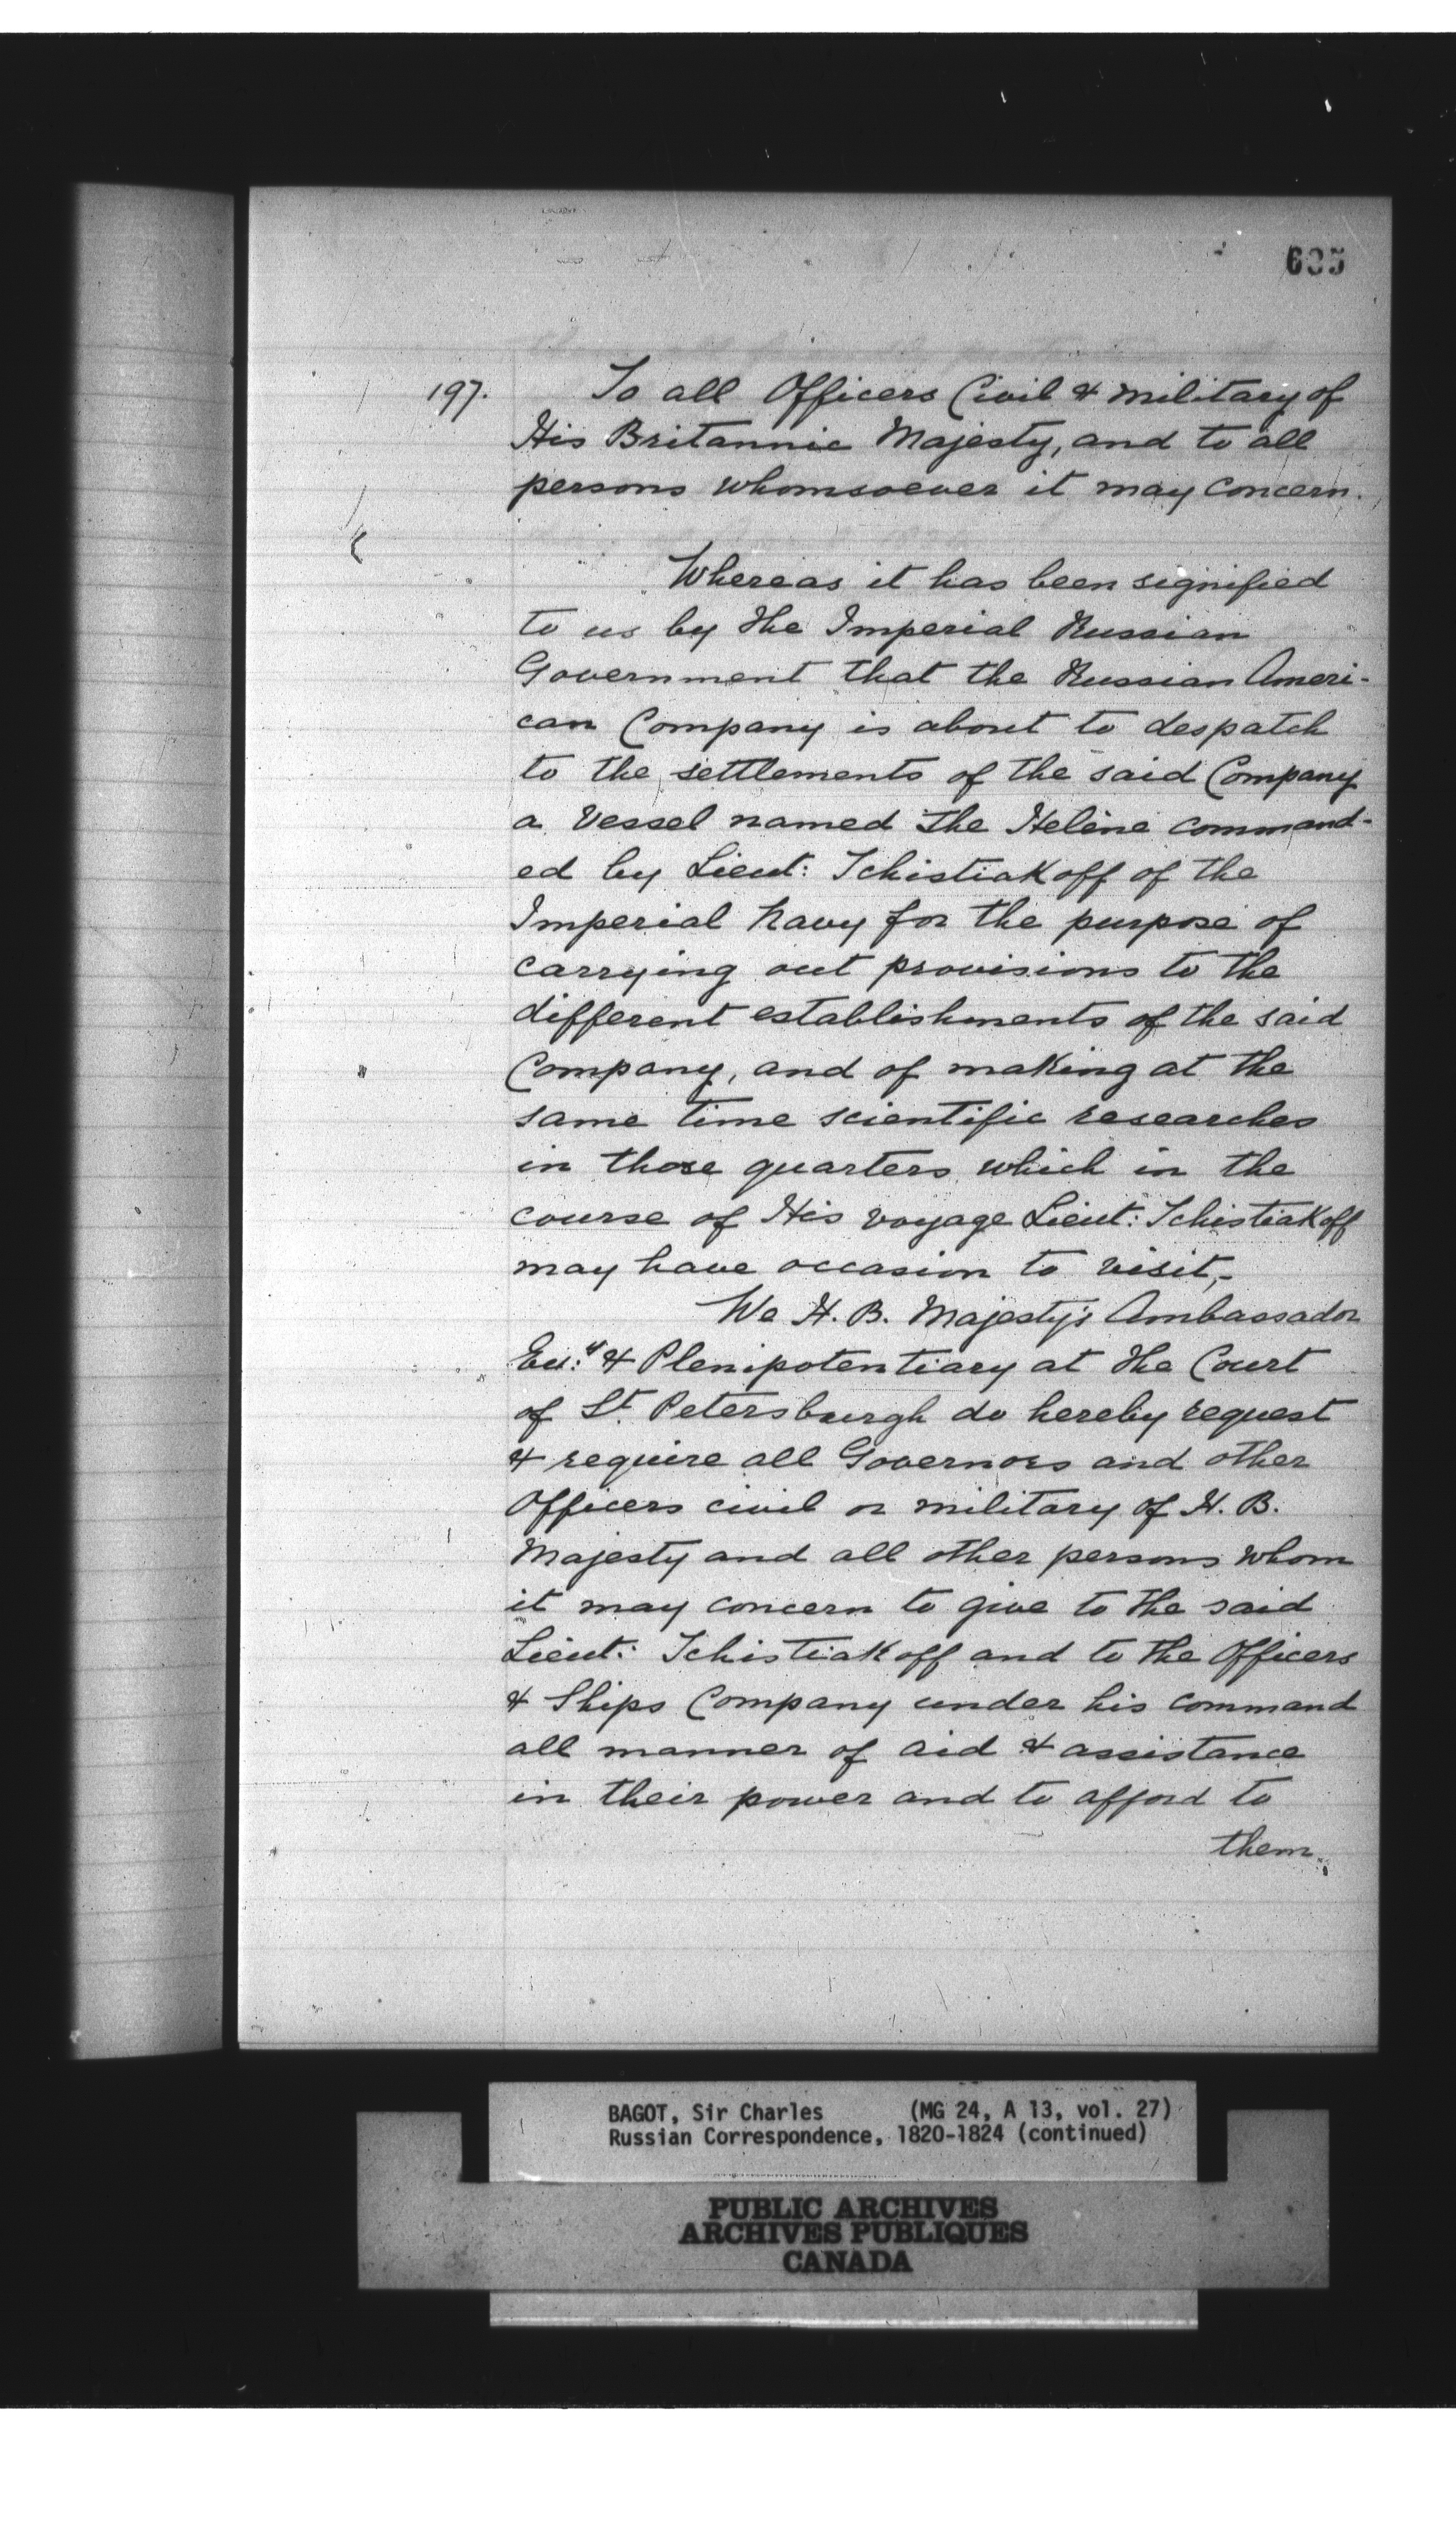 635
197. To all Officers Civil & military of
His Britannic Majesty, and to all
persons whomsoever it may concern.
Whereas it has been signified
to us by the Imperial Russian
Government that the Russian Ameri-
can Company is about to despatch
to the settlements of the said Company
a Vessel named the Helène command-
ed by Lieut: Tchistiakoff of the
Imperial Navy for the purpose of
carrying out provisions to the
different establishments of the said
Company, and of making at the
same time scientific researches
in those quarters which in the
course of His voyage Lieut: Tchistiakoff
may have occasion to visit,-
We H. B. Majesty's Ambassador
& Plenipotentiary at the Court
of St. Petersburgh do hereby request
& require all Governors and other
Officers civil or military of H. B.
Majesty and all other persons whom
it may concern to give to the said
Lieut: Tchistiakoff and to the Officers
& Ships Company under his command
all manner of aid & assistance
in their power and to afford to
them.
BAGOT, Sir Charles (MG 24, A 13, vol. 27)
Russian Correspondence, 1820-1824 (continued)
PUBLIC ARCHIVES
ARCHIVES PUBLIQUES
CANADA